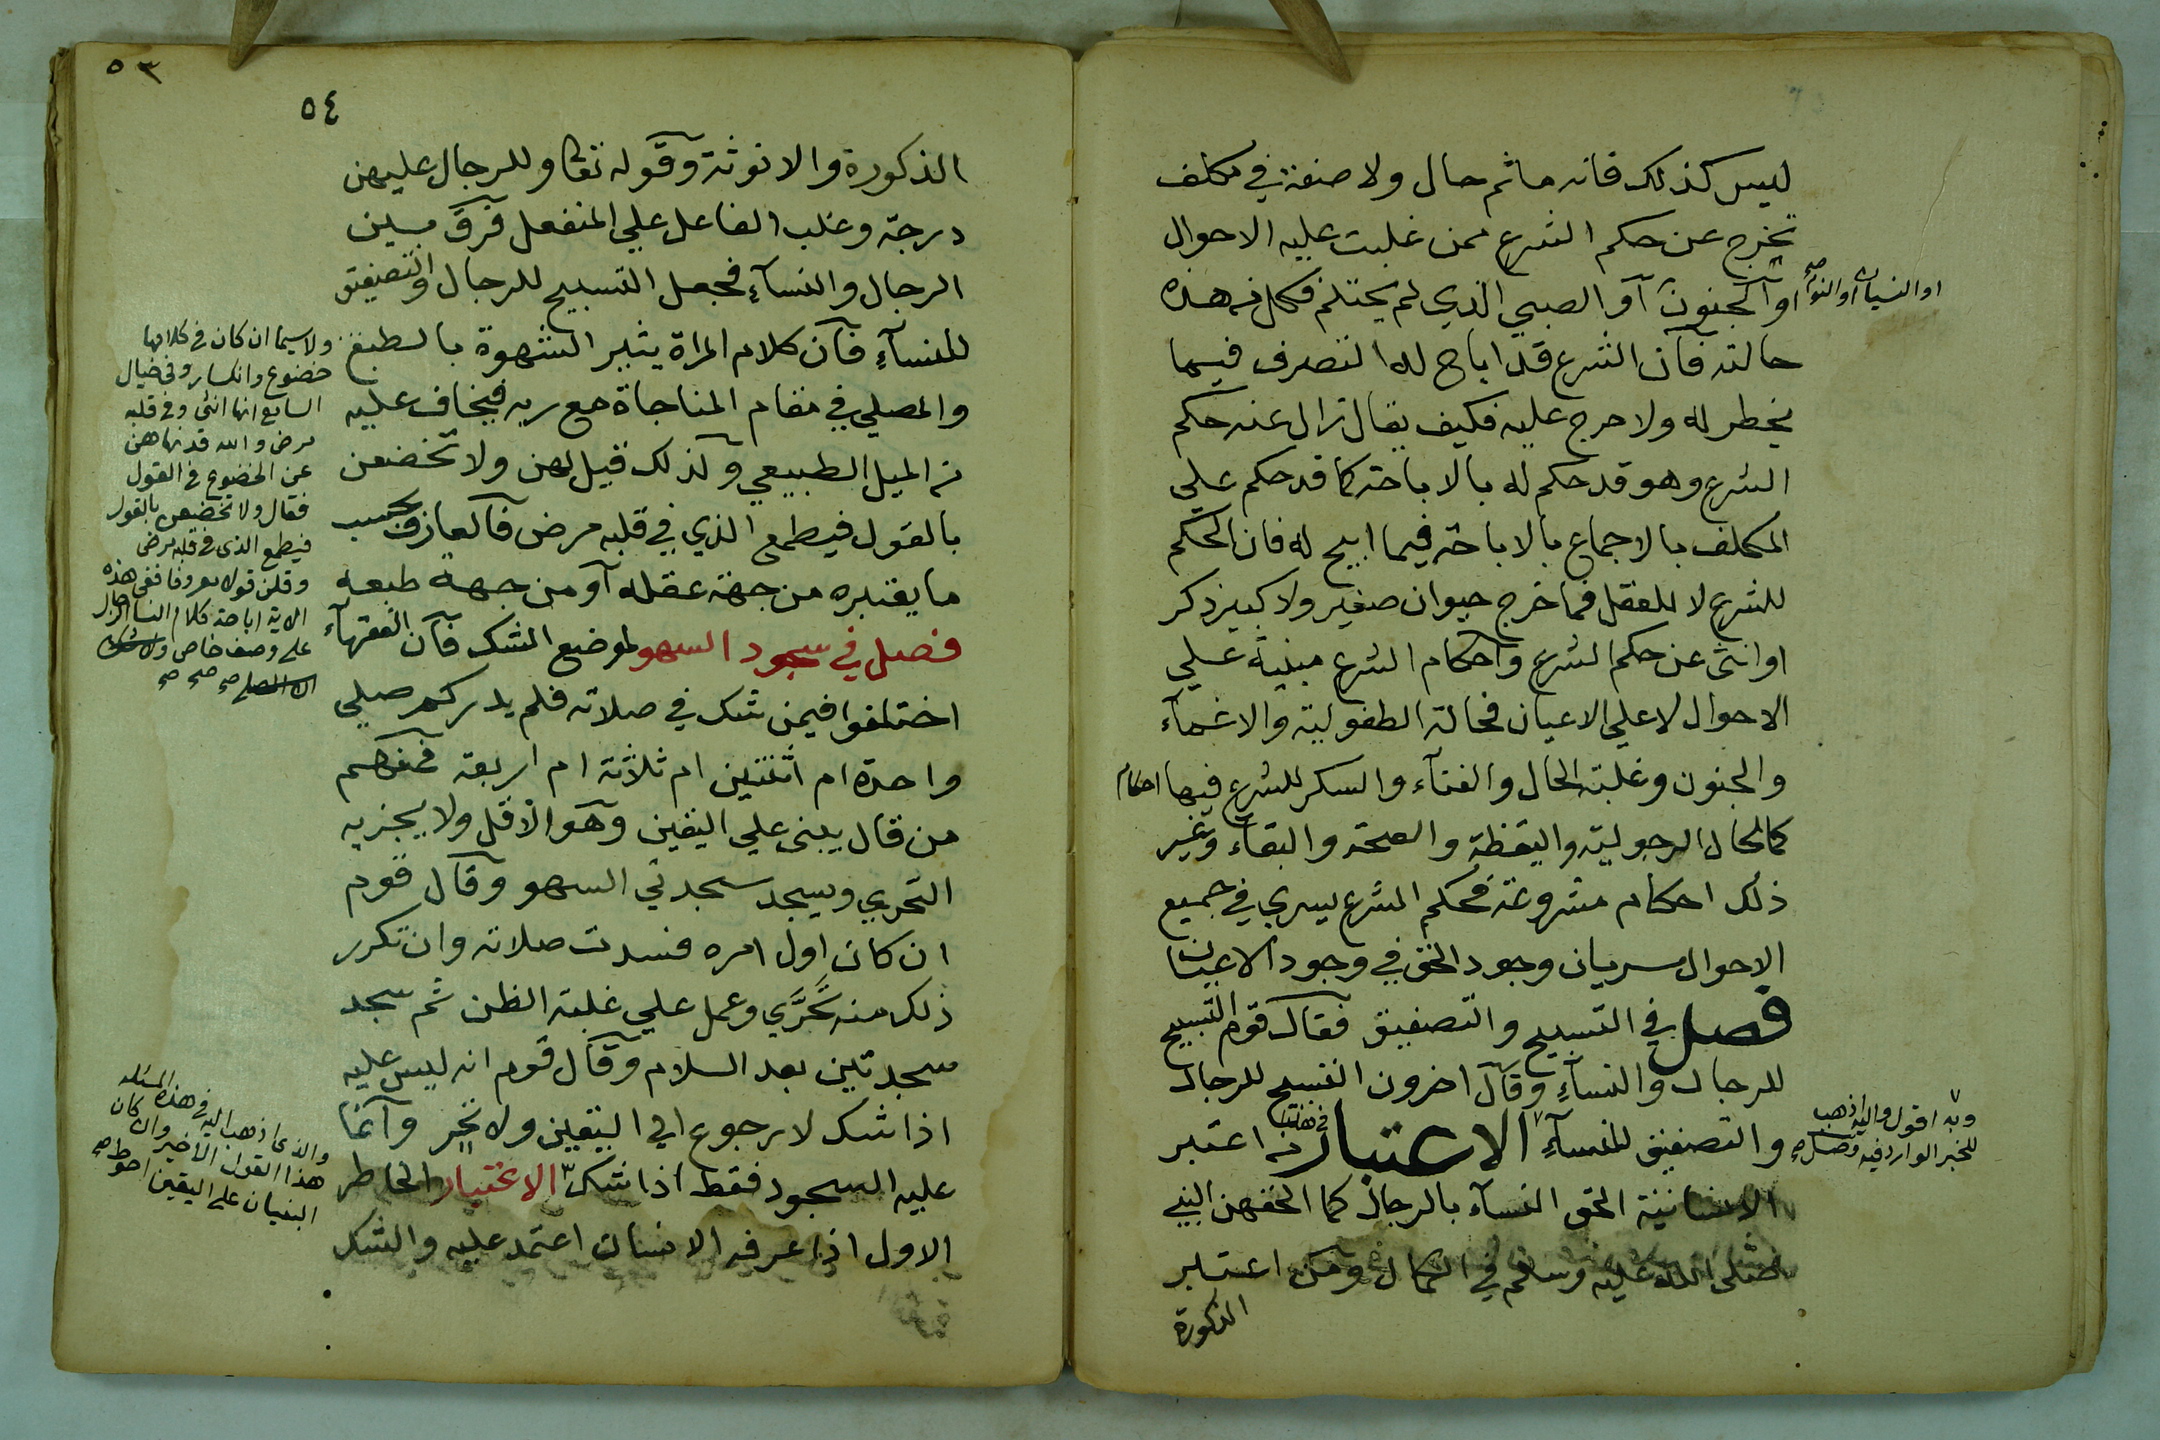 ليس كذلك فانه ماثم حال ولا صفة في مكلف
تخرج عن حكم الشرع ممن غلبت عليه الاحوال
او الجنون او الصبي الذي لم يحتلم فكل من هذه
او النسيان او النوم صح
حالته فان الشرع قد اباح له التصرف فيما
يخطر له ولا حرج عليه فكيف يقال زال عنه حكم
الشرع وهو قد حكم له بالاباحة كما قد حكم علي
المكلف بالاجماع بالاباحة فيما ابيح له فان الحكم
للشرع لا للعقل فما خرج حيوان صغير ولا كبير ذكر
او انثى عن حكم الشرع واحكام الشرع مبنية علي
الاحوال لا علي الاعيان فحالة الطفولية والاغمآء
والجنون وغلبة الحال والفنآء والسكر للشرع فيها احكام
كما لحال الرجولية واليقظة والصحة والبقآء وغير
ذلك احكام مشروعة فحكم الشرع يسري في جميع
الاحوال سريان وجود الحق في وجود الاعيان
فصل في التسبيح والتصفيق فقال قوم التسبيح
للرجال والنسآء وقال اخرون التسبيح للرجال
والتصفيق للنسآء الاعتبار في هذا من اعتبر
وبه اقول واليه اذهب
للخبر الوارد فيه
الانسانية الحق النسآء بالرجال كما الحقهن النبي
صلى الله عليه وسلم في الكمال ومن اعتبر
الذكورة
٥٣
٥٤
الذكورة والانوثة وقوله تعا وللرجال عليهن
درجة وغلب الفاعل علي المنفعل فرق بين
الرجال والنسآء فجعل التسبيح للرجال والتصفيق
للنسآء فان كلام المراة يثير الشهوة بالطبع
والمصلي في مقام المناجاة مع ربه فيخاف عليه
من الميل الطبيعي ولذلك قيل لهن ولا تخضعن
بالقول فيطمع الذي في قلبه مرض فالعارف بحسب
ما يعتبره من جهة عقله او من جهة طبعه
فصل في سجود السهو لموضع الشك فان الفقهآء
اختلفوا فيمن شك في صلاته فلم يدر كم صلي
واحدة ام اثنتين ام ثلاثة ام اربعة فمنهم
من قال يبنى علي اليقين وهو الاقل ولا يجزيه
التحري ويسجد سجدتي السهو وقال قوم
ان كان اول امره فسدت صلاته وان تكرر
ذلك منه تحرَّي وعمل علي غلبة الظن ثم سجد
سجدتين بعد السلام وقال قوم انه ليس عليه
اذا شك لا رجوع الي اليقين ولا تحر وانما
عليه السجود فقط اذا شك الاعتبار الخاطر
الاول اذا عرفه الانسان اعتمد عليه والشك
ولاسيما ان كان في كلامها
خضوع وانكسار وفي خيال
السامع انها انثى وفي قلبه
مرض والله قد نهاهن
عن الخضوع في القول
فقال ولا تخضعن بالقول
فيطمع الذى في قلبه مرض
وقلن قولا معروفا ففي هذه
الاية اباحة كلام النسا الرجال
على وصف خاص
صح صح صح
والذي اذهب اليه في هذه المسئله
هذا القول الاخير وان كان
البنيان على اليقين احوط صح